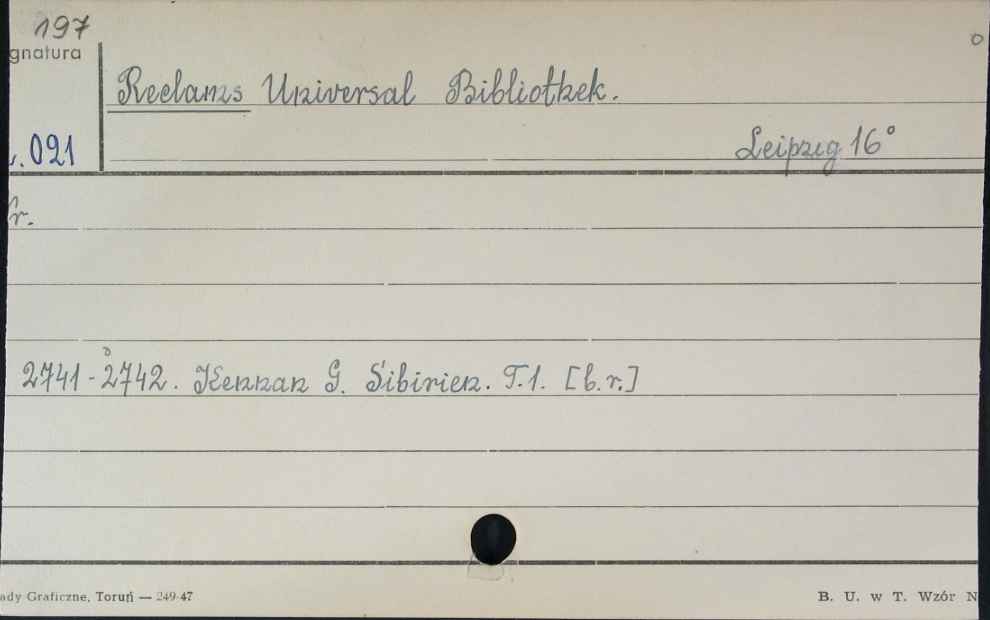 197
gnatura
Reclams Universal Bibliothek.
. 021
Leipzig 16°
Nr.
2741-2742. Kennan G. Sibirien. T.1. [b.r.]
ady Graficzne, Toruń — 249-47
B. U. w T. Wzór N